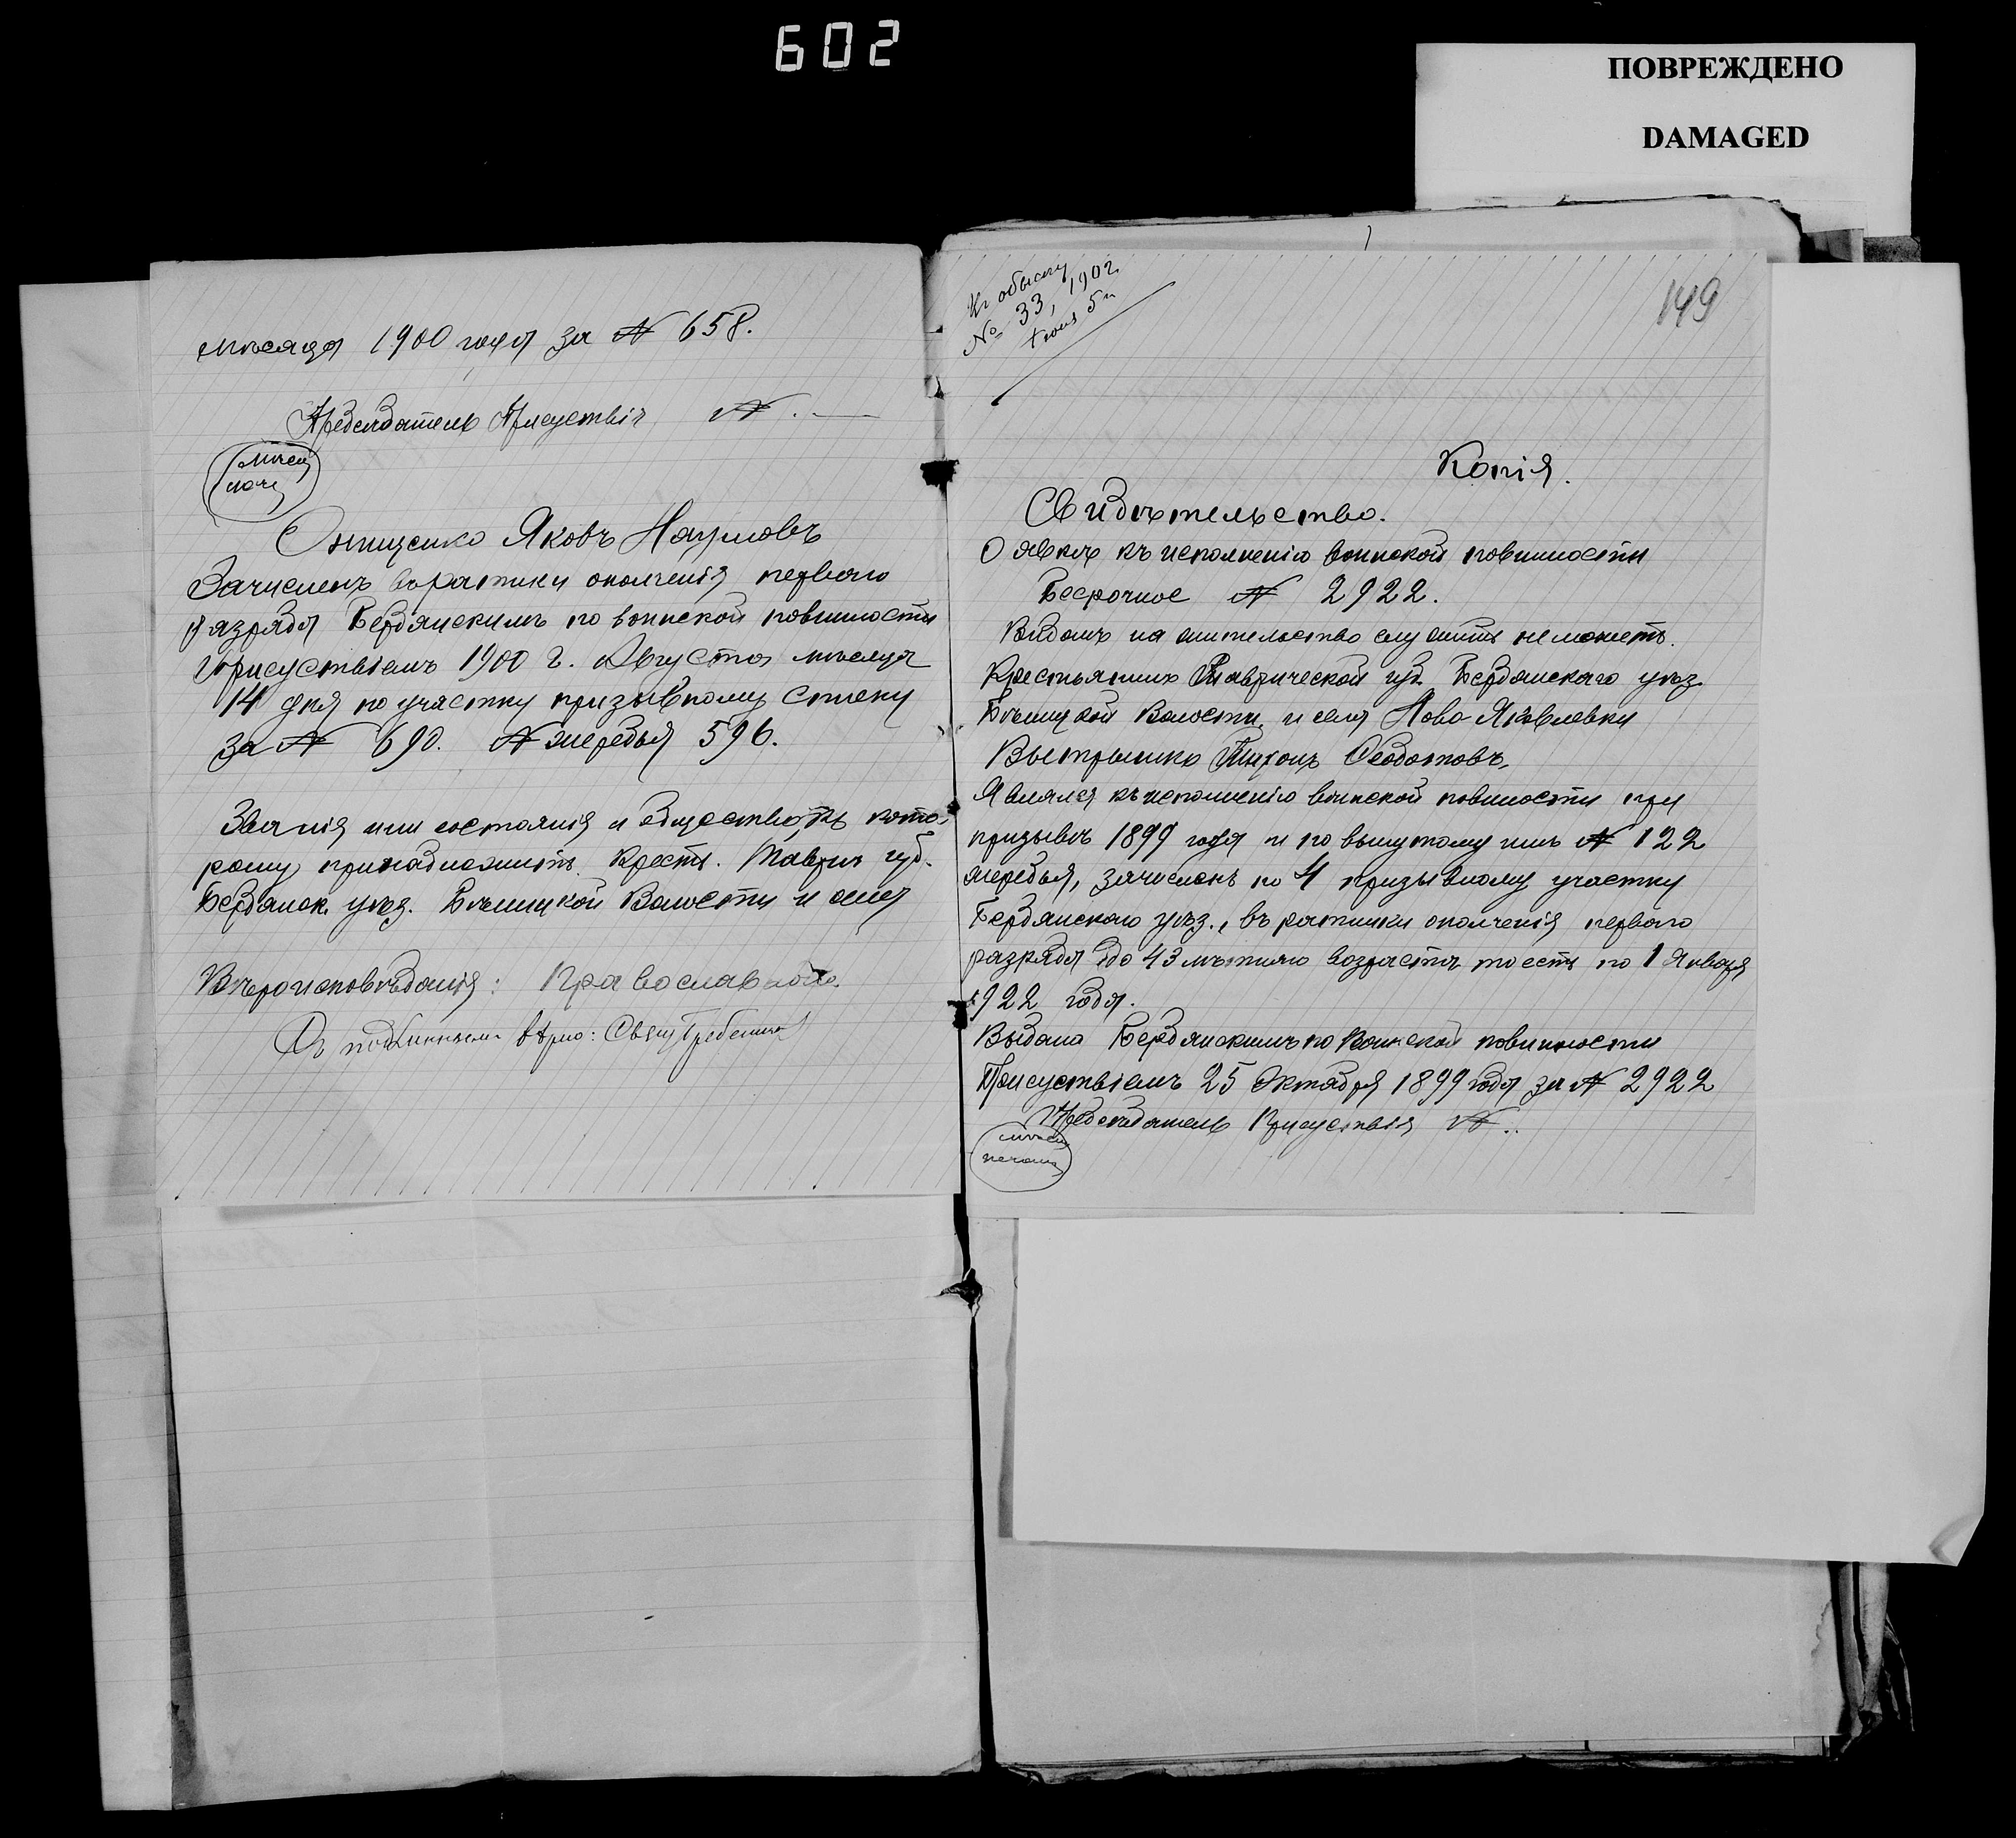 602
ПОВРЕЖДЕНО
DAMAGED
мѣсяца 1900 года за № 658.
Предсѣдатель Присуствія N. —
мѣсто
печ.
Онищенко Яковъ Наумовъ
Зачисленъ въ ратники ополченія перваго
разряда Бердянскимъ по воинской повинности
Присуствіемъ 1900 г. Августа мѣсяца
14 дня по участку призывному списку
за № 690. № жеребья 596.
Званія или состоянія и общество, къ кото-
рому принадлежитъ. Крест. Таврич губ.
Бердянск. уѣз. Бѣлицкой Волости и села
Вѣроисповѣданія: Православнаго.
Съ подлиннымъ вѣрно: Свящ.
Къ обыску
№ 33, 1902
149
Копія.
Свидѣтельство.
О явкѣ къ исполненію воинской повинности
Бесрочное № 2922.
Видомъ на жительство служить не можетъ.
Крестьянинъ Таврической губ. Бердянскаго уѣз.
Волости, и села Ново-Яковлевки
Тихонъ Феодотовъ,
Являлся къ исполненію воинской повиности при
призывѣ 1899 года и по вынутому имъ № 122
жеребья, зачисленъ по 4 призывному участку
Бердянскаго уѣз., въ ратники ополченія перваго
разряда до 43 лѣтняго возраста тоесть по 1 Января
1922 года.
Выдано Бердянскимъ по Воинской повинности
Присуствіемъ 25 Октября 1899 года за № 2922
Предсѣдатель Присуствія N..
мѣсто
печати